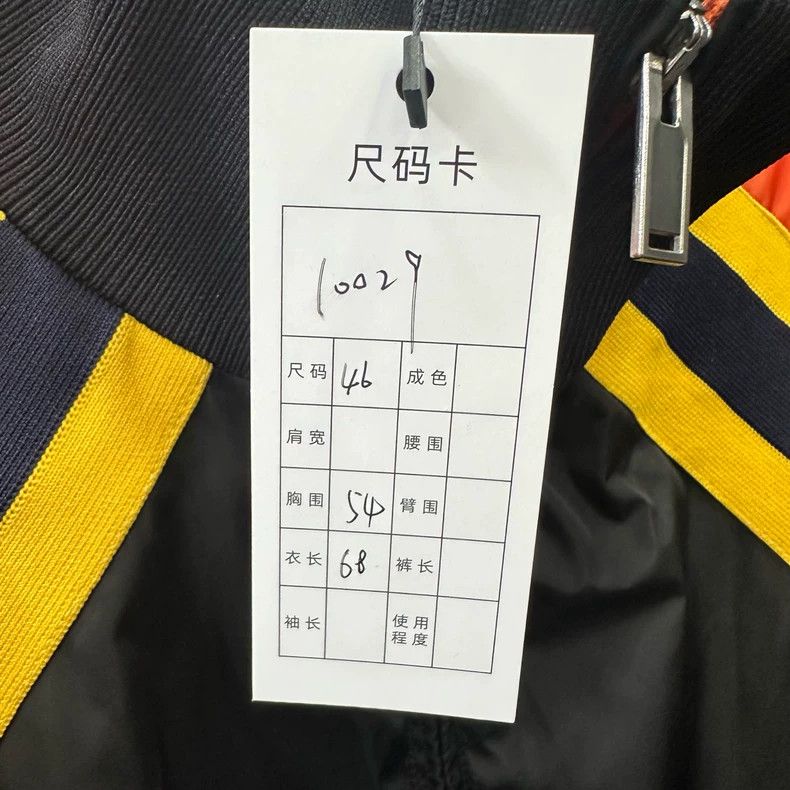 尺码卡
10029
尺码 46 成色
肩宽 腰围
胸围 54 臂围
衣长 68 裤长
袖长 使用程度